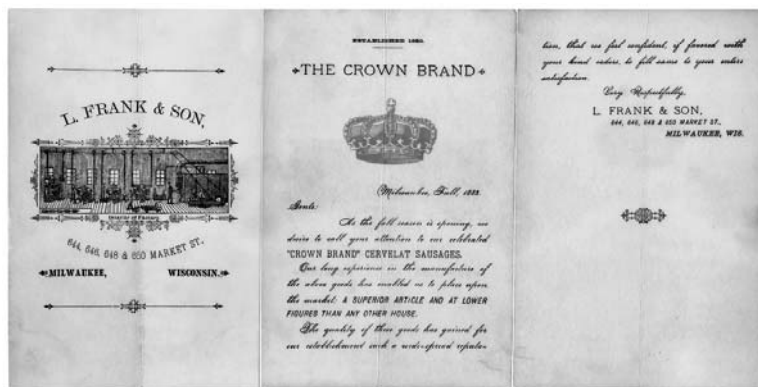 L. FRANK & SON,
Interior of Factory
644, 646, 648 & 650 MARKET ST.,
MILWAUKEE, WISCONSIN.
THE CROWN BRAND
Milwaukee, Fall,
Gents:
As the fall season is opening, we
desire to call your attention to our celebrated
"CROWN BRAND" CERVELAT SAUSAGES.
Our long experience in the manufacture of
the above goods has enabled us to place upon
the market: A SUPERIOR ARTICLE AND AT LOWER
FIGURES THAN ANY OTHER HOUSE.
The quality of these goods has gained for
our establishment such a wide-spread reputa-
tion, that we feel confident, if favored with
your kind orders, to fill same to your entire
satisfaction.
Very Respectfully,
L. FRANK & SON,
644, 646, 648 & 650 MARKET ST.,
MILWAUKEE, WIS.